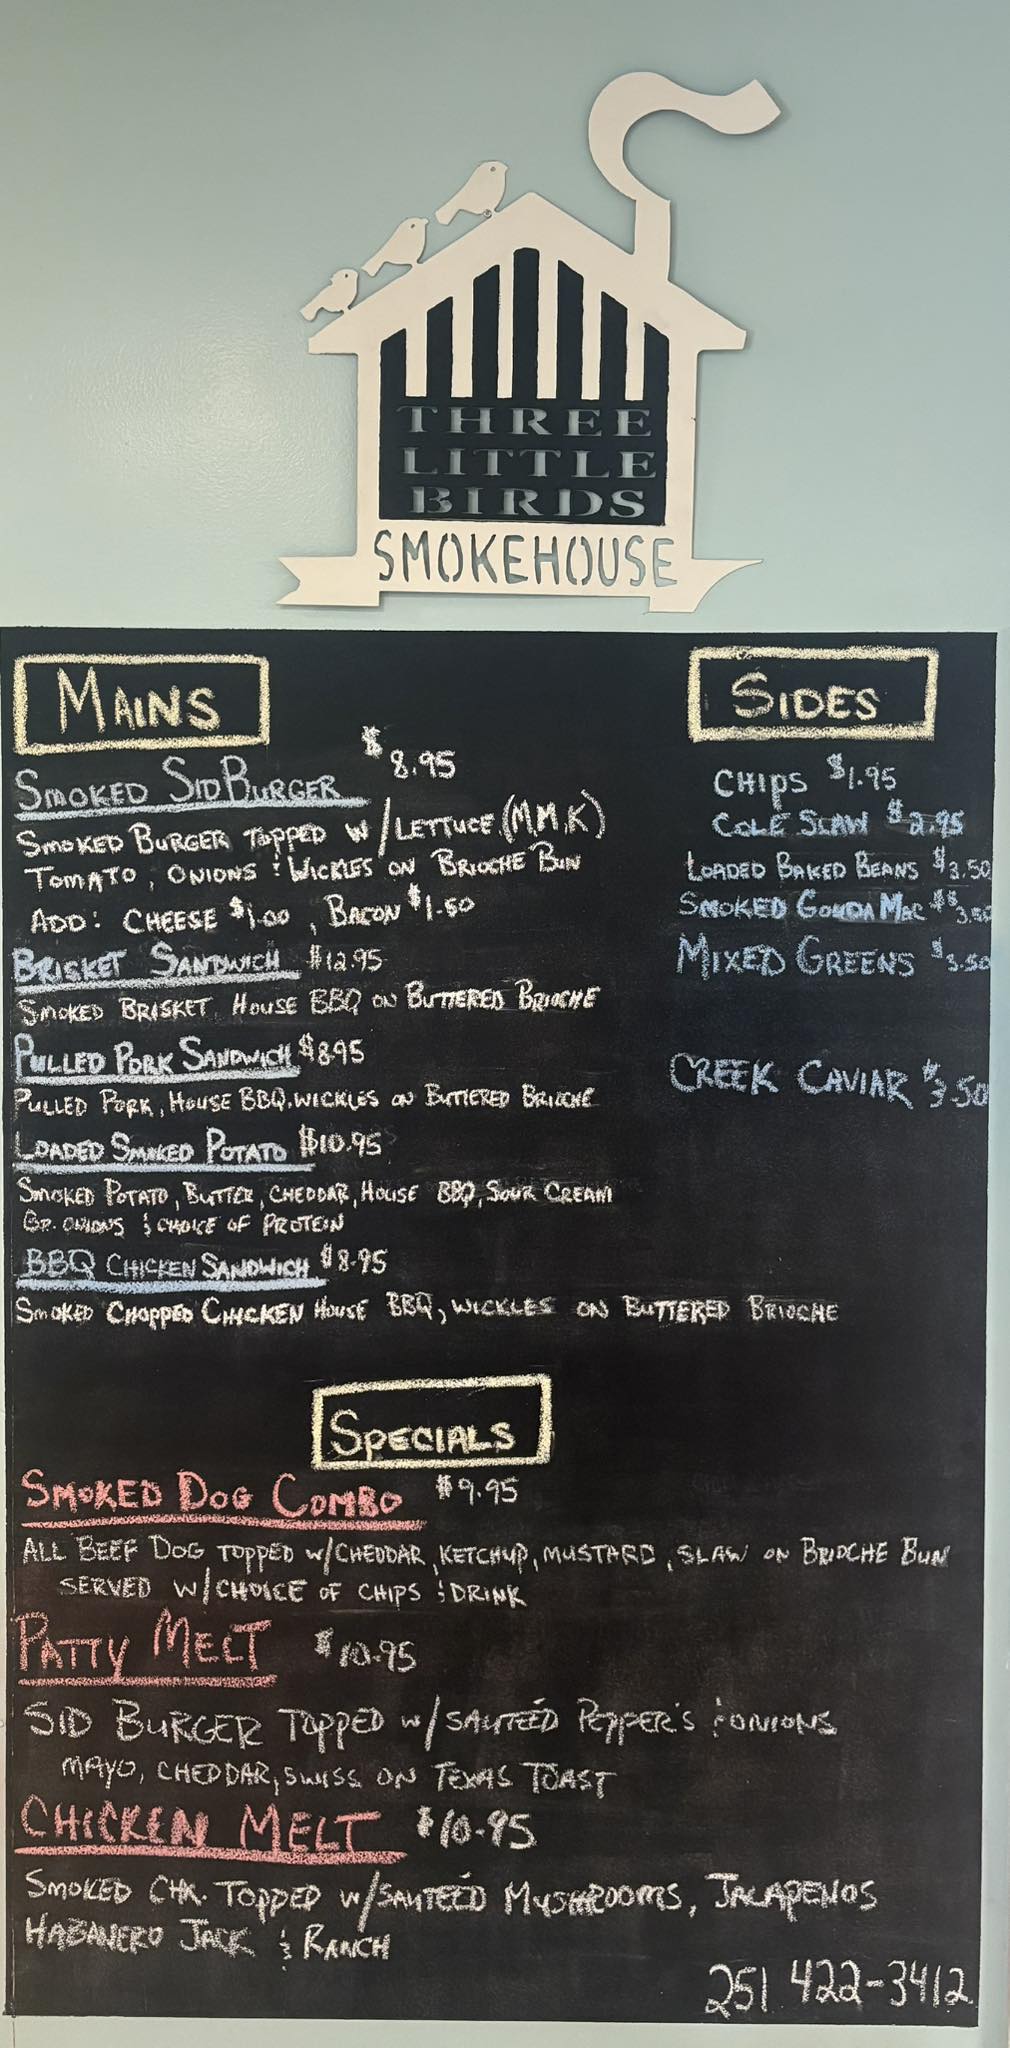 THREE
LITTLE
BIRDS
SMOKEHOUSE
MAINS
SMOKED SIDBURGER $8.95
SMOKED BURGER TOPPED W/LETTUCE (M,M,K)
TOMATO, ONIONS & WICKLES ON BRIOCHE BUN
ADD: CHEESE $1.00, BACON $1.50
BRISKET SANDWICH $12.95
SMOKED BRISKET, HOUSE BBQ ON BUTTERED BRIOCHE
PULLED PORK SANDWICH $8.95
PULLED PORK, HOUSE BBQ, WICKLES ON BUTTERED BRIOCHE
LOADED SMOKED POTATO $10.95
SMOKED POTATO, BUTTER, CHEDDAR, HOUSE BBQ, SOUR CREAM
GR. ONIONS & CHOICE OF PROTEIN
BBQ CHICKEN SANDWICH $8.95
SMOKED CHOPPED CHICKEN HOUSE BBQ, WICKLES ON BUTTERED BRIOCHE
SIDES
CHIPS $1.95
COLE SLAW $2.95
LOADED BAKED BEANS $3.50
SMOKED GOUDA MAC $3.50
MIXED GREENS $3.50
CREEK CAVIAR $3.50
SPECIALS
SMOKED DOG COMBO $9.95
ALL BEEF DOG TOPPED W/CHEDDAR, KETCHUP, MUSTARD, SLAW ON BRIOCHE BUN
SERVED W/CHOICE OF CHIPS & DRINK
PATTY MELT $10.95
SID BURGER TOPPED W/SAUTÉED PEPPER'S & ONIONS
MAYO, CHEDDAR, SWISS ON TEXAS TOAST
CHICKEN MELT $10.95
SMOKED CHK. TOPPED W/SAUTÉED MUSHROOMS, JALAPENOS
HABANERO JACK & RANCH
251 422-3412